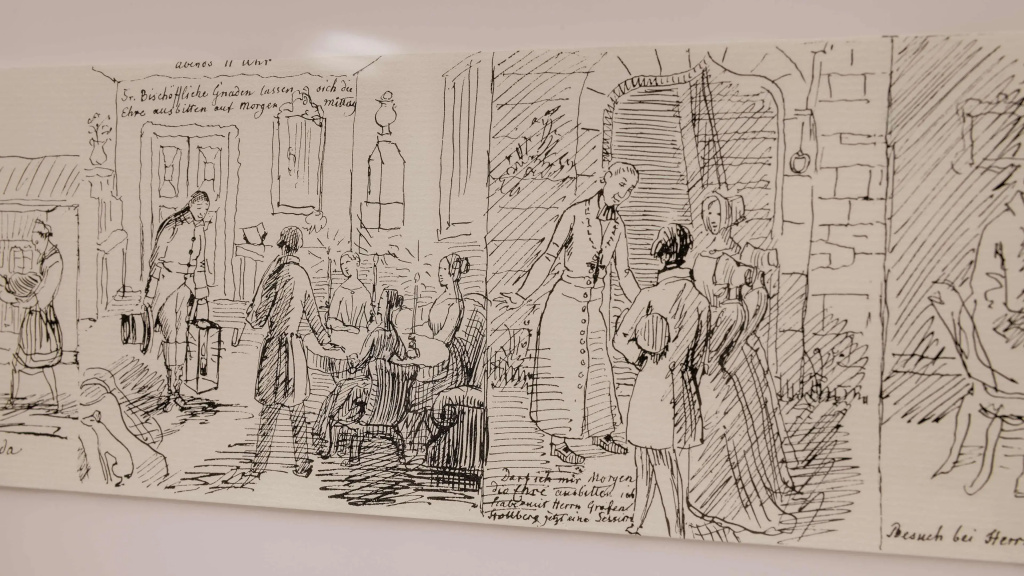 abends 11 Uhr
Sr. Bischöffliche Gnaden lassen sich die
Ehre ausbitten auf Morgen Mittag
da
Darf ich mir Morgen
die Ehre ausbitten ich
habe mit Herrn Grafen
Stollberg jetzt eine Session
Besuch bei Herr